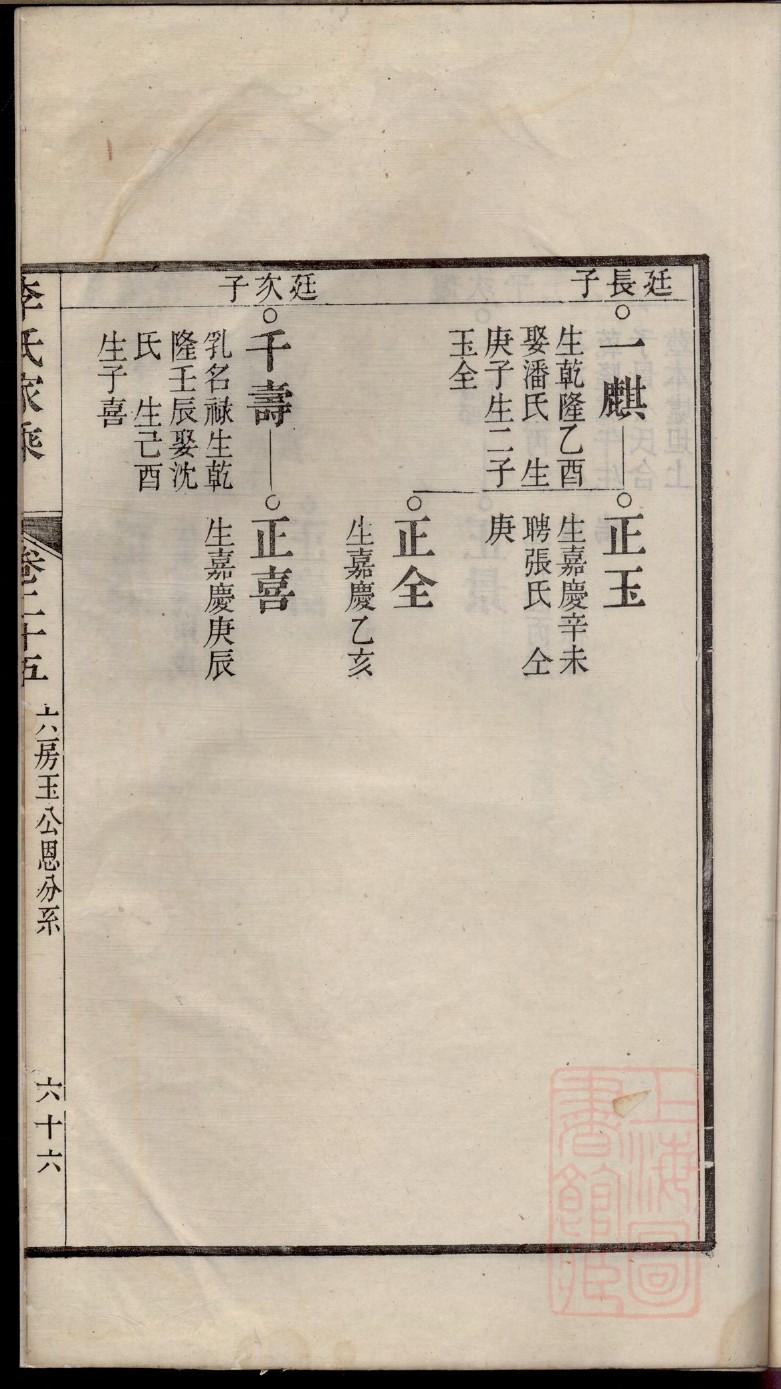 廷長子
一麒
生乾隆乙酉
娶潘氏　生
庚子生二子
玉全
正玉
生嘉慶辛未
聘張氏　仝
庚
正全
生嘉慶乙亥
廷次子
千壽
乳名禄生乾
隆壬辰娶沈
氏　生己酉
生子喜
正喜
生嘉慶庚辰
李氏家乘
卷二十五
六房玉公恩分系
六十六
上海圖
書館藏